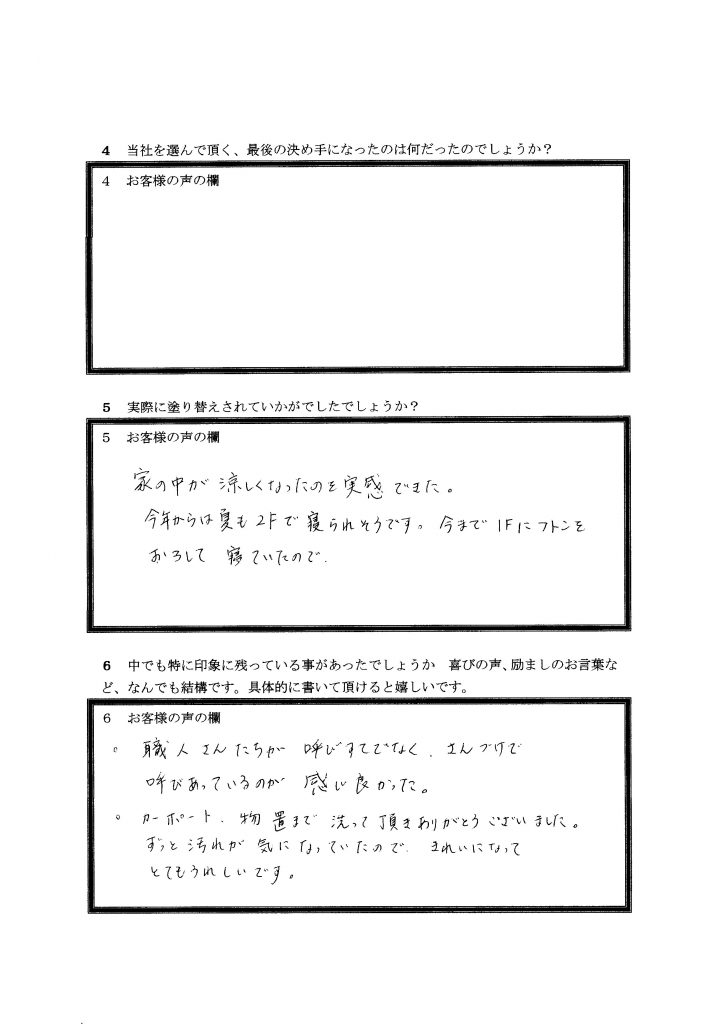 4 当社を選んで頂く、最後の決め手になったのは何だったのでしょうか？
4 お客様の声の欄
5 実際に塗り替えされていかがでしたでしょうか？
5 お客様の声の欄
家の中が涼しくなったのを実感できた。
今年からは夏も2Fで寝られそうです。今まで1Fにフトンを
おろして寝ていたので.
6 中でも特に印象に残っている事があったでしょうか 喜びの声、励ましのお言葉な
ど、なんでも結構です。具体的に書いて頂けると嬉しいです。
6 お客様の声の欄
。職人さんたちが呼びすてでなく、さんづけで
呼びあっているのが感じ良かった。
。カーポート、物置まで洗って頂きありがとうございました。
ずっと汚れが気になっていたので、きれいになって
とてもうれしいです。